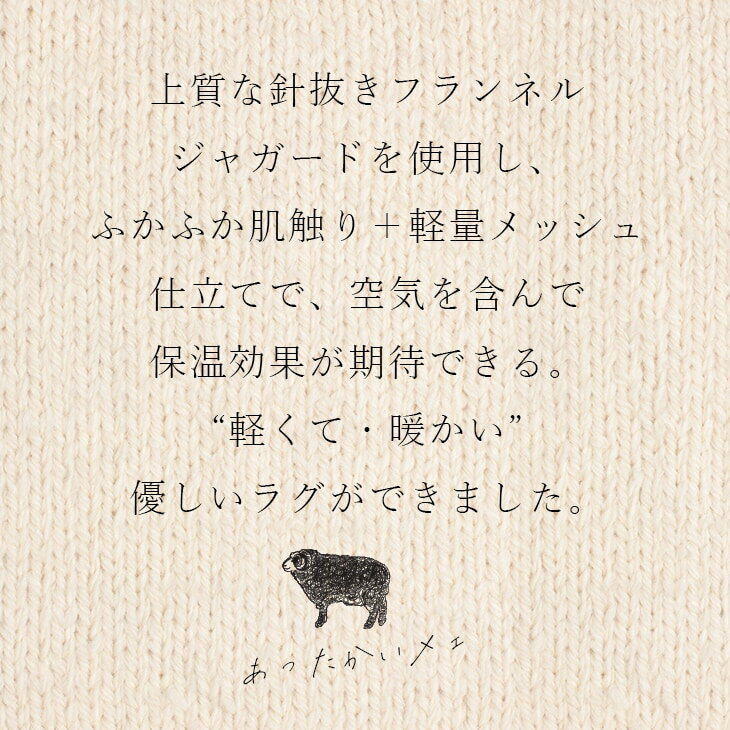 上質な針抜きフランネル
ジャガードを使用し、
ふかふか肌触り＋軽量メッシュ
仕立てで、空気を含んで
保温効果が期待できる。
“軽くて・暖かい”
優しいラグができました。
あったかいメェ